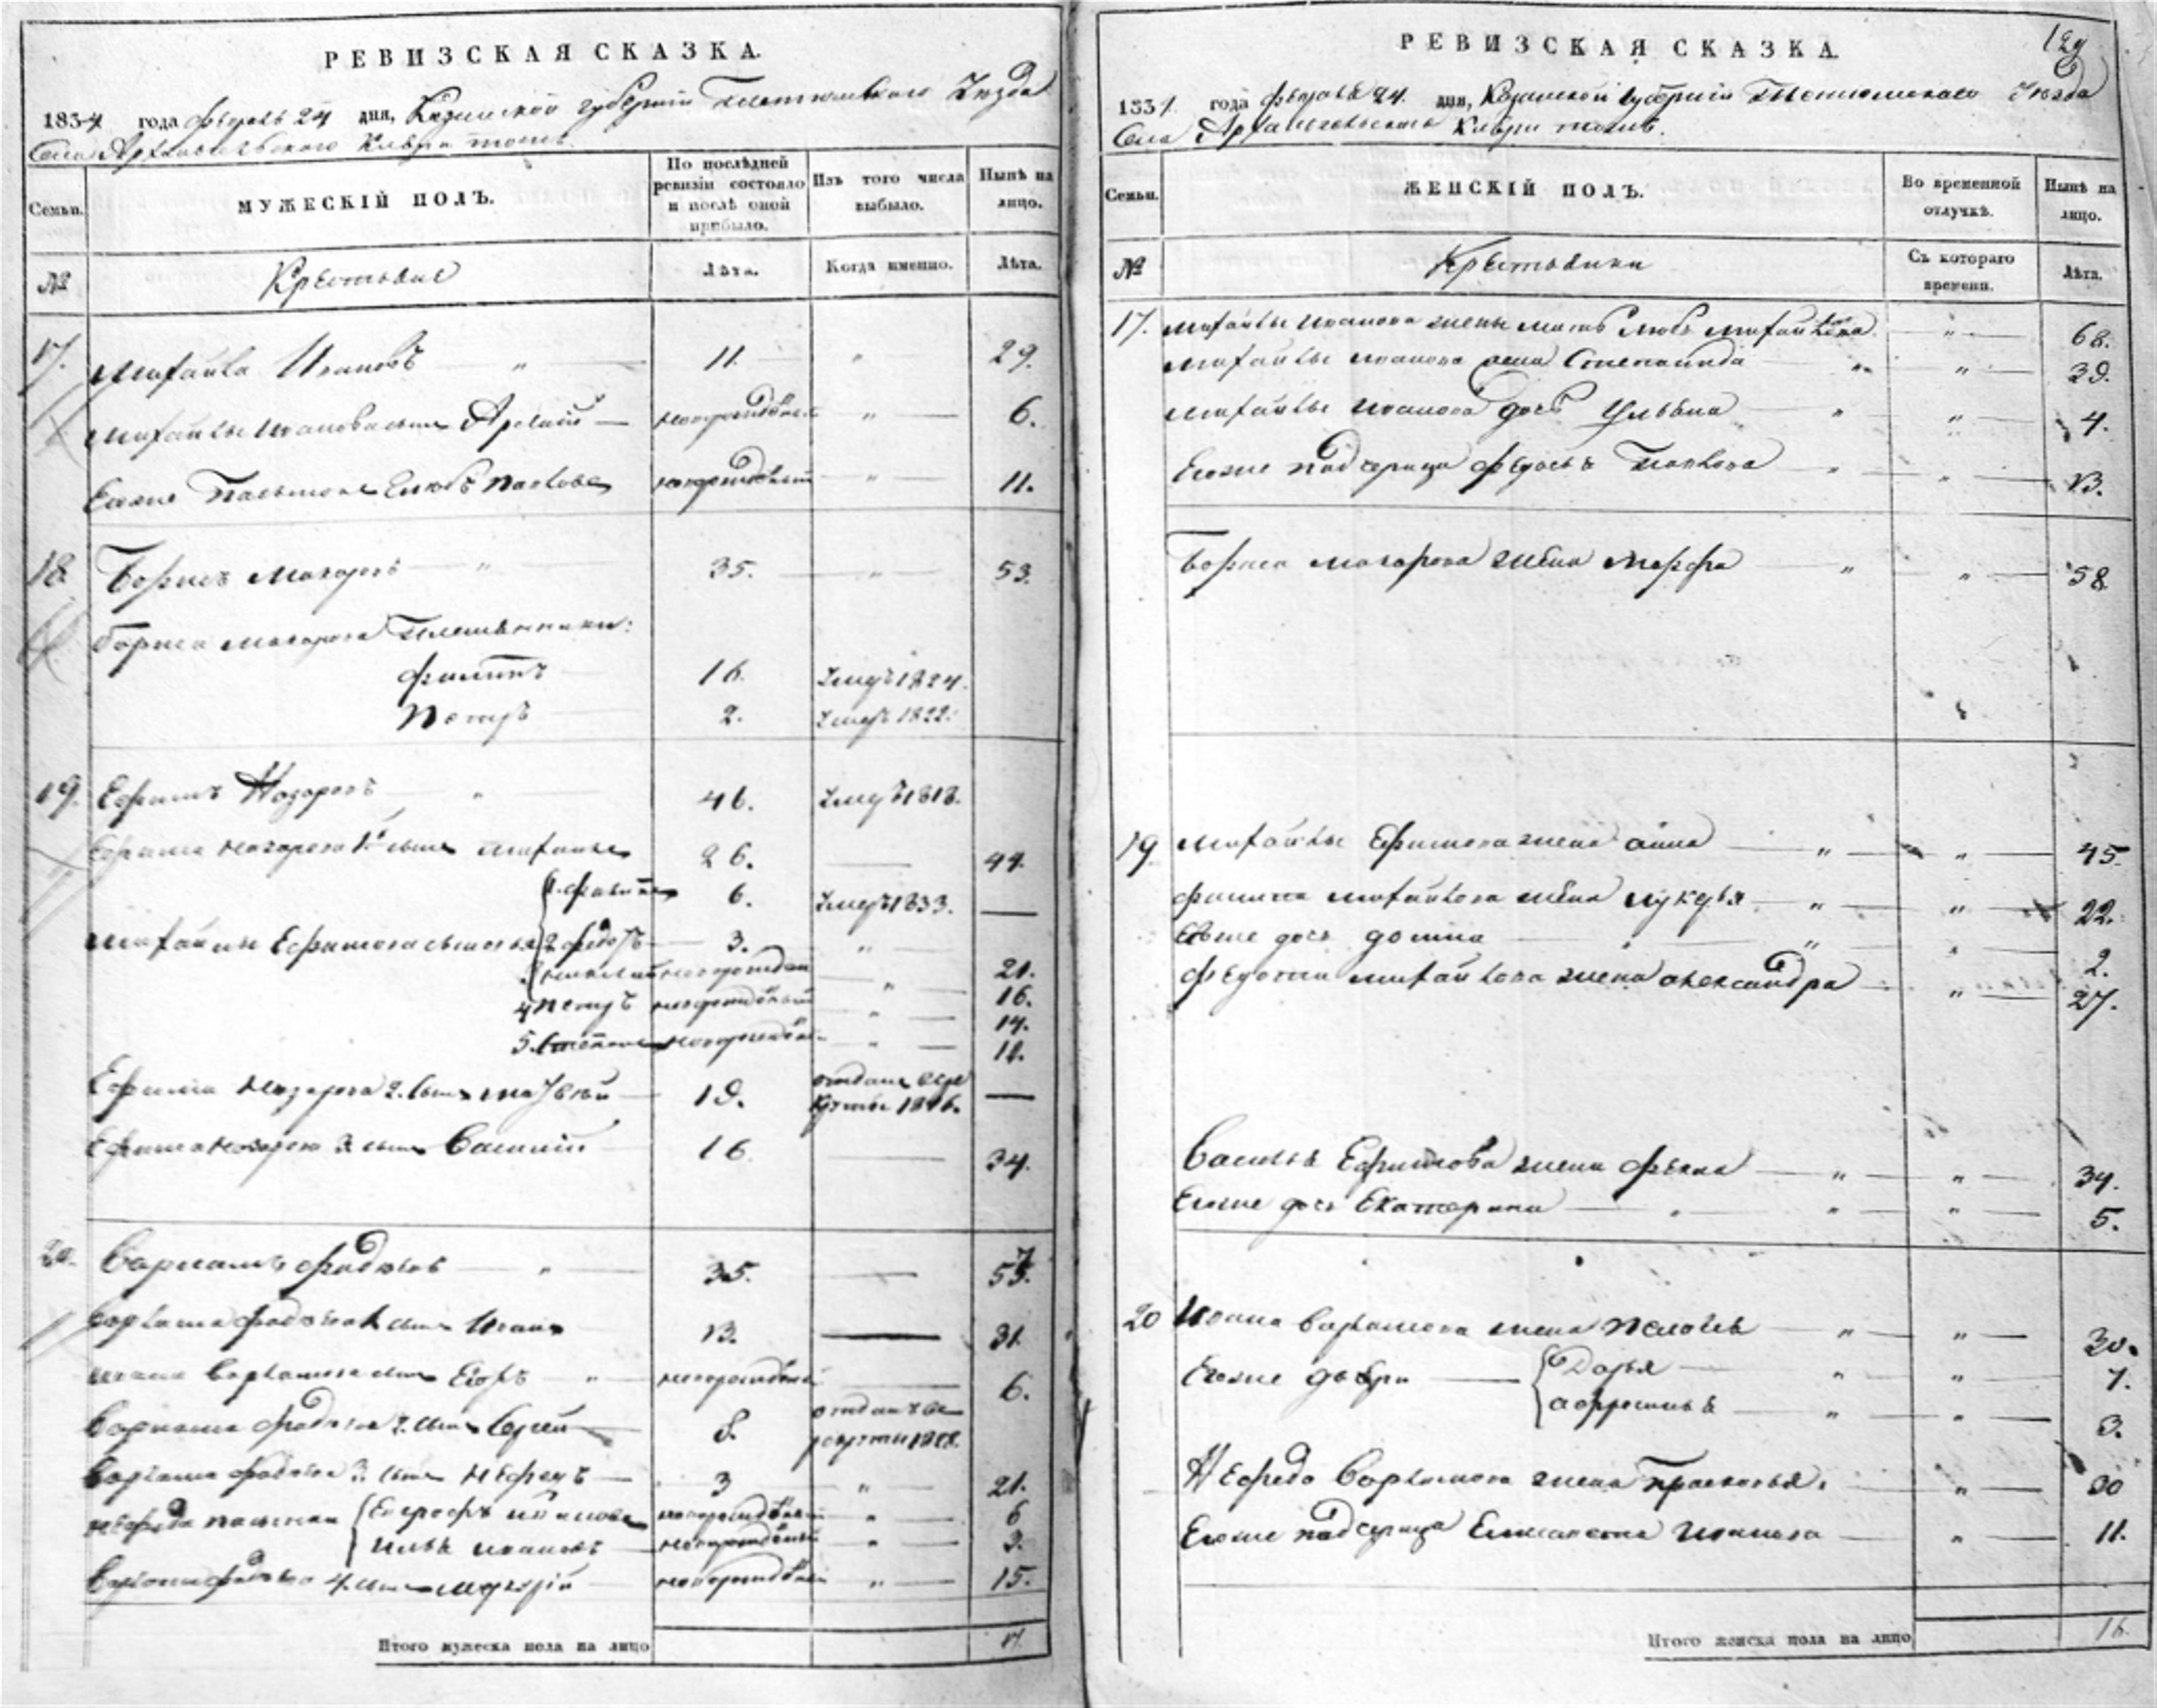 РЕВИЗСКАЯ СКАЗКА.
1834 года февраля 24 дня, Казанской губернии Тетюшского Уезда
Села Архангельского
Семьи.
МУЖЕСКІЙ ПОЛЪ.
По послѣдней ревизіи состояло и послѣ оной прибыло.
Изъ того числа выбыло.
Нынѣ на лицо.
№
Крестьяне
Лѣта.
Когда именно.
Лѣта.
17. Михайла Ивановъ " 11. " 29.
Михайлы Иванова сынъ новорожденный " 6.
Павлова новорожденный " 11.
18. Борисъ Макаровъ " 35. " 53.
Бориса Макарова племянники:
Филиппъ 16. Умеръ 1824.
Петръ 2. Умеръ 1822.
19. Ефимъ Назаровъ " 46. Умеръ 1818.
Ефима Назарова 1й сынъ Михайла 26. 44.
1. Филиппъ 6. Умеръ 1833.
Михайлы Ефимова сыновья 2 3. " 21.
3 Николай новорожден " 16.
4 Петръ новорожденный " 14.
5. Степанъ новорожден " 11.
Ефима Назарова 2. сынъ Матвей 19. отданъ въ рекруты
Ефима Назарова 3 сынъ Василий 16 34.
20. Варламъ Фадѣевъ " 35. 53.
Варлама Фадѣева 1 сынъ Иванъ 13. 31.
Ивана Варламова сынъ Егоръ " новорожденный 6.
Варлама Фадѣева 2. сынъ Сергей 8. отданъ въ рекруты
Варлама Фадѣева 3. сынъ Нефедъ 3 " 21.
Нефеда пасынки Ерофей Иванова новорожденный " 6
Илья Ивановъ новорожденный " 3.
Варлама Фадѣева 4. сынъ новорожденный " 15.
Итого мужеска пола на лицо 17.
129
РЕВИЗСКАЯ СКАЗКА.
1834 года февраля 24. дня, Казанской губернии Тетюшского Уезда
Села Архангельского
Семьи.
ЖЕНСКІЙ ПОЛЪ.
Во временной отлучкѣ.
Нынѣ на лицо.
№
Крестьянки
Съ котораго времени.
Лѣта.
17. Михайлы Иванова жены мать Михайлова " 68.
Михайлы Иванова жена Степанида " " 39.
Михайлы Иванова дочь Ульяна " " 4.
Егоже падчерица Федосья Павлова " " 13.
Бориса Макарова жена Марфа " " 58.
19. Михайлы Ефимова жена Анна " " 45.
Филиппа Михайлова жена Лукерья " " 22.
Егоже дочь Домна " " 2.
Федота Михайлова жена Александра " 27.
Василья Ефимова жена Фекла " " 34.
Егоже дочь Екатерина " " " 5.
20 Ивана Варламова жена Пелагея " " 30.
Егоже дочери Дарья " " 7.
Афросинья " " 3.
Нефеда Варламова жена Прасковья. " 30
Егоже падчерица Елисавета Иванова " 11.
Итого женска пола на лицо 16.